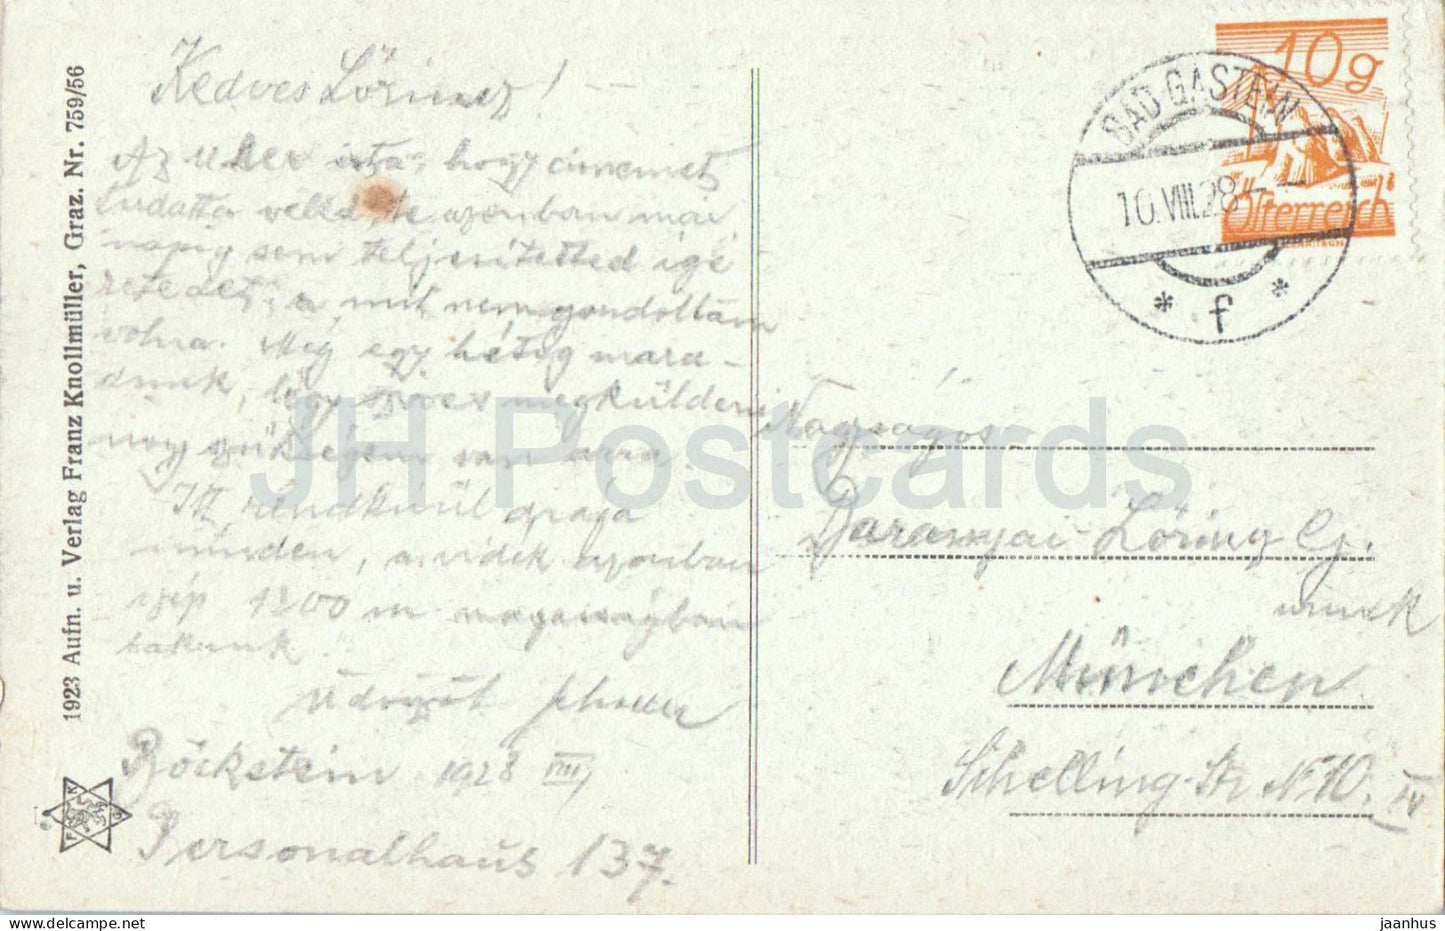 Kedves Lőrincz!
Az u. hex irta, hogy cimemet
tudatta véled, te azonban mai
napig sem teljesitetted igé
retedet, a mit nem gondoltam
volna. Még egy hétig mara-
dunk, légy szives megküldeni
nagy szükségem van arra.
Itt rendkivül drága
minden, a vidék azonban
szép 1200 m magasságban
lakunk.
Üdvözöl
Böckstein 1928 VIII/
Personalhaus 137.
1923 Aufn. u. Verlag Franz Knollmüller, Graz. Nr. 759/56
F K G
10g
Österreich
BAD GASTEIN
10.VIII.28
* f *
Nagyságos
Daranyai Lőrincz
urnak
München
Schelling-Str. № 10. IV
JH Postcards
jaanhus